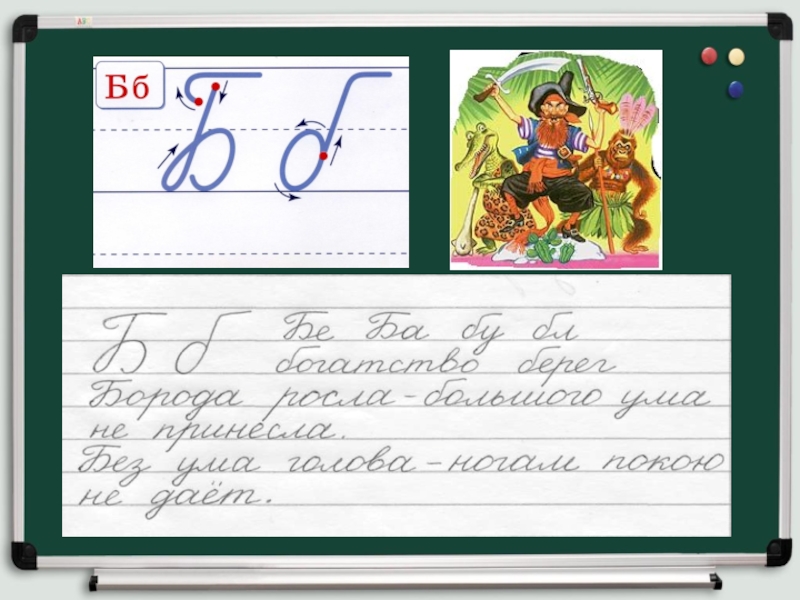 АБС
Бб
Б б
Б б Бе Ба бу бл
богатство берег
Борода росла - большого ума
не принесла.
Без ума голова - ногам покою
не даёт.